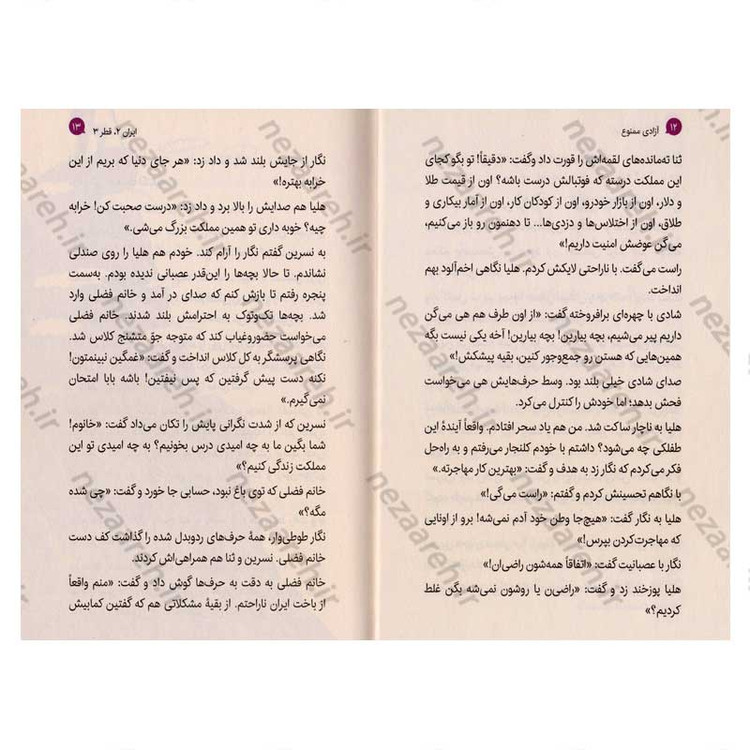 ۱۲ آزادی ممنوع
ثنا ته‌مانده‌های لقمه‌اش را قورت داد وگفت: «دقیقاً! تو بگو کجای
این مملکت درسته که فوتبالش درست باشه؟ اون از قیمت طلا
و دلار، اون از بازار خودرو، اون از کودکان کار، اون از آمار بیکاری و
طلاق، اون از اختلاس‌ها و دزدی‌ها... تا دهنمون رو باز می‌کنیم،
می‌گن عوضش امنیت داریم!»
راست می‌گفت. با ناراحتی لایکش کردم. هلیا نگاهی اخم‌آلود بهم
انداخت.
شادی با چهره‌ای برافروخته گفت: «از اون طرف هم هی می‌گن
داریم پیر می‌شیم، بچه بیارین! بچه بیارین! آخه یکی نیست بگه
همین‌هایی که هستن رو جمع‌وجور کنین، بقیه پیشکش!»
صدای شادی خیلی بلند بود. وسط حرف‌هایش هی می‌خواست
فحش بدهد؛ اما خودش را کنترل می‌کرد.
هلیا به ناچار ساکت شد. من هم یاد سحر افتادم. واقعاً آیندهٔ این
طفلکی چه می‌شود؟ داشتم با خودم کلنجار می‌رفتم و به راه‌حل
فکر می‌کردم که نگار زد به هدف و گفت: «بهترین کار مهاجرته.»
با نگاهم تحسینش کردم و گفتم: «راست می‌گی!»
هلیا به نگار گفت: «هیچ‌جا وطن خود آدم نمی‌شه! برو از اونایی
که مهاجرت‌کردن بپرس!»
نگار با عصبانیت گفت: «اتفاقاً همه‌شون راضی‌ان!»
هلیا پوزخند زد و گفت: «راضی‌ن یا روشون نمی‌شه بگن غلط
کردیم؟»
ایران ۲، قطر ۳ ۱۳
نگار از جایش بلند شد و داد زد: «هر جای دنیا که بریم از این
خرابه بهتره!»
هلیا هم صدایش را بالا برد و داد زد: «درست صحبت کن! خرابه
چیه؟ خوبه داری تو همین مملکت بزرگ می‌شی.»
به نسرین گفتم نگار را آرام کند. خودم هم هلیا را روی صندلی
نشاندم. تا حالا بچه‌ها را این‌قدر عصبانی ندیده بودم. به‌سمت
پنجره رفتم تا بازش کنم که صدای در آمد و خانم فضلی وارد
شد. بچه‌ها تک‌وتوک به احترامش بلند شدند. خانم فضلی
می‌خواست حضوروغیاب کند که متوجه جوّ متشنج کلاس شد.
نگاهی پرسشگر به کل کلاس انداخت و گفت: «غمگین نبینمتون!
نکنه دست پیش گرفتین که پس نیفتین! باشه بابا امتحان
نمی‌گیرم.»
نسرین که از شدت نگرانی پایش را تکان می‌داد گفت: «خانوم!
شما بگین ما به چه امیدی درس بخونیم؟ به چه امیدی تو این
مملکت زندگی کنیم؟»
خانم فضلی که توی باغ نبود، حسابی جا خورد و گفت: «چی شده
مگه؟»
نگار طوطی‌وار، همهٔ حرف‌های ردوبدل شده را گذاشت کف دست
خانم فضلی. نسرین و ثنا هم همراهی‌اش کردند.
خانم فضلی به دقت به حرف‌ها گوش داد و گفت: «منم واقعاً
از باخت ایران ناراحتم. از بقیهٔ مشکلاتی هم که گفتین کمابیش
nezaareh.ir